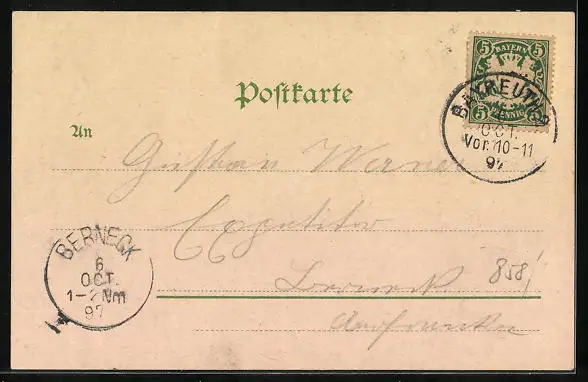 5 BAYERN 5
5 PFENNIG 5
BAYREUTH
OCT.
Vor. 10-11
97
Postkarte
An
Gustav Werner
Expeditor
BERNECK
6
OCT.
1-2 Nm
97
Berneck
858/